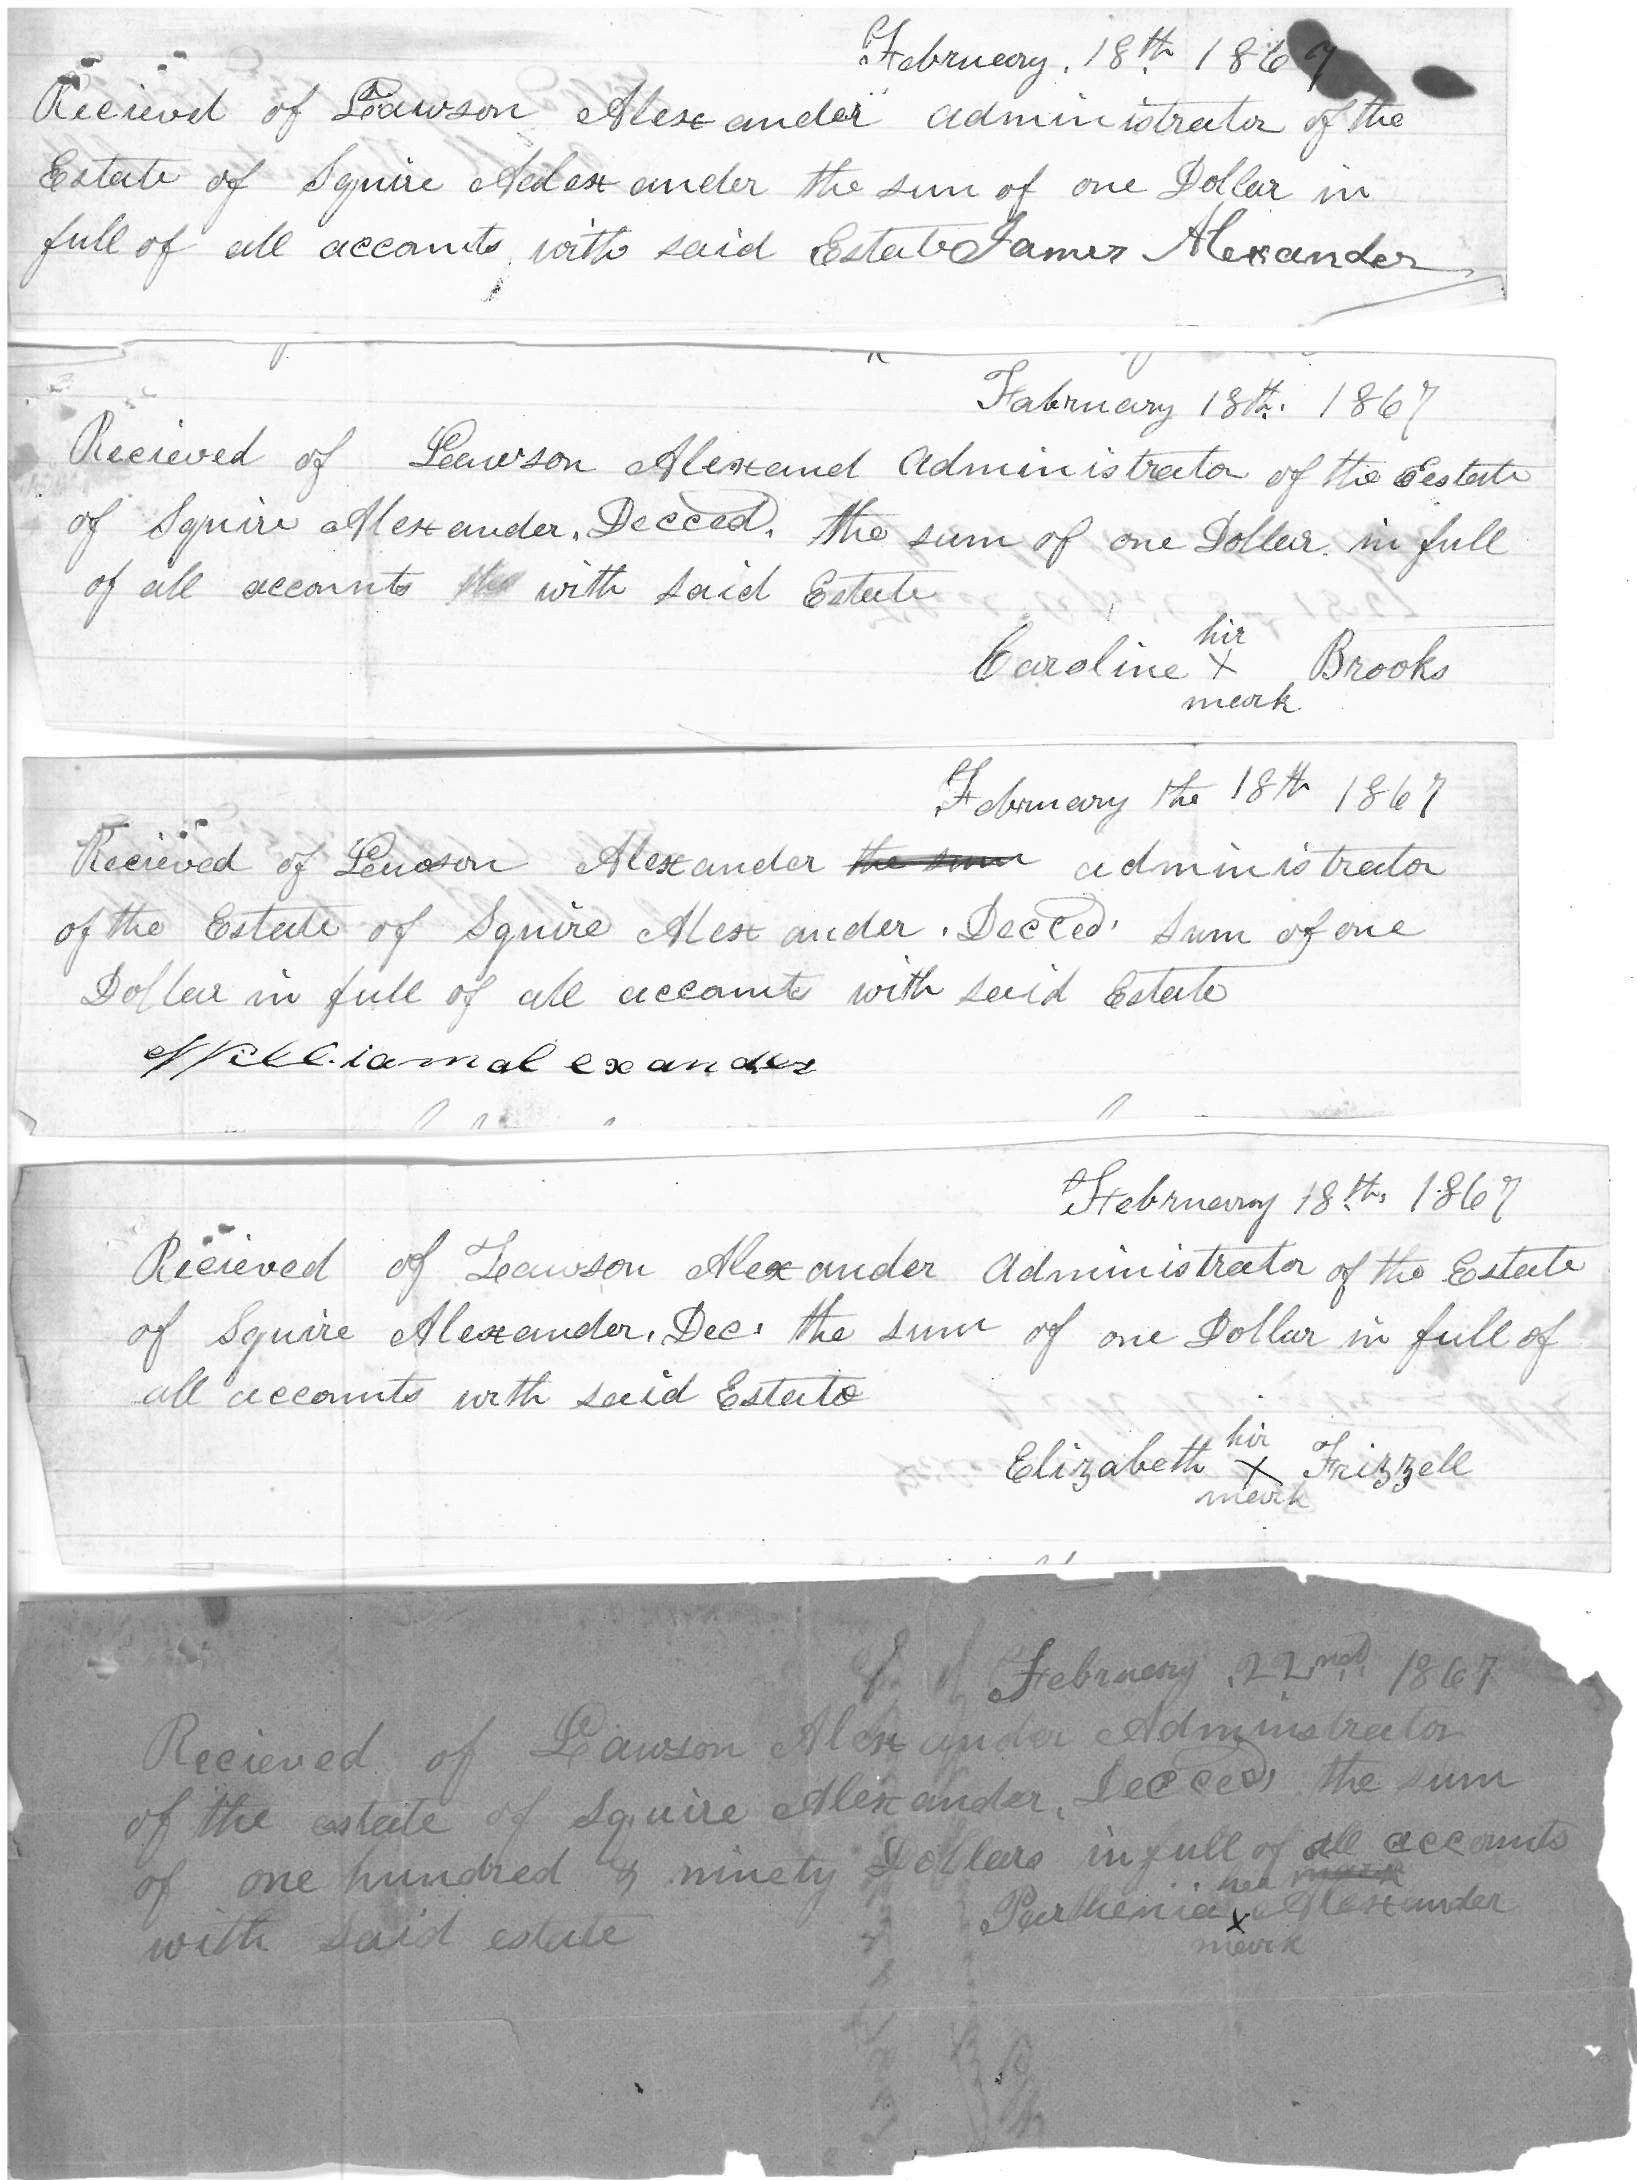 February. 18th. 1867
Recieved of Lawson Alexander administrator of the
Estate of Squire Aelexander the sum of one Dollar in
full of all accounts with said Estate James Alexander
Fabruary 18th. 1867
Recieved of Lawson Alexand Administrator of the Eestate
of Squire Alexander. Decced. the sum of one Dollar. in full
of all accounts the with said Estate
hir
Caroline X Brooks
mark
February the 18th 1867
Recieved of Lawson Alexander the sum administrator
of the Estate of Squire Alexander. Decced. sum of one
Dollar in full of all accounts with said Estate
William alexander
February 18th. 1867
Recieved of Lawson Alexander Administrator of the Estate
of Squire Alexander. Dec. the sum of one Dollar in full of
all accounts with said Estate
hir
Elizabeth X Frizzell
mark
February 22nd. 1867
Recieved of Lawson Alexander Administrator
of the estate of Squire Alexander. Decced, the sum
of one hundred & ninety Dollars in full of all accounts
her mark
with said estate Parthenia X Alexander
mark